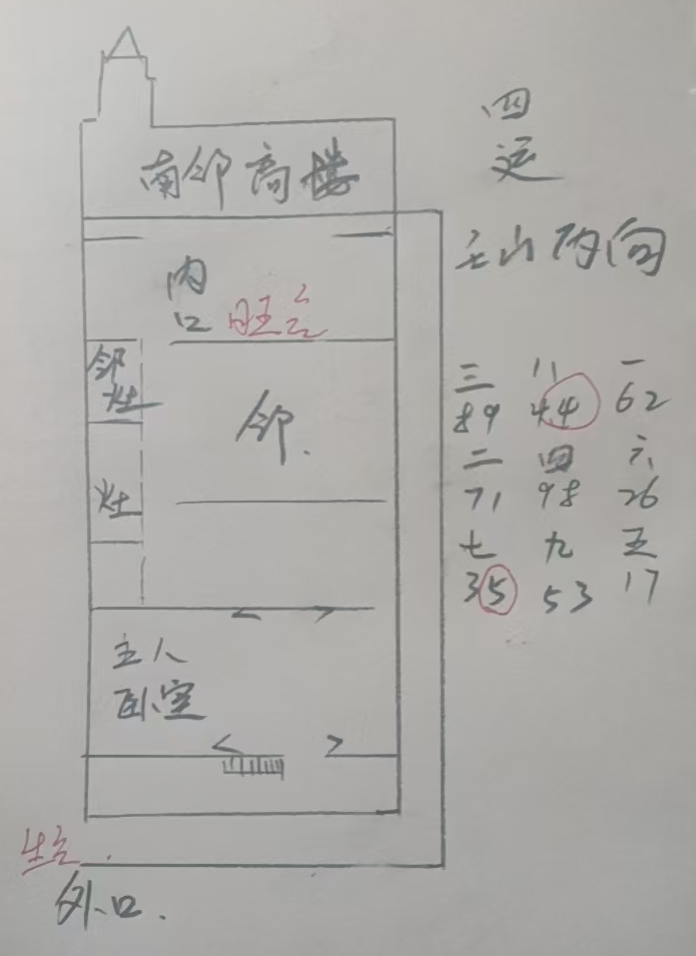 四
运
南邻高楼
壬山丙向
内
口 旺气
邻
灶
邻.
灶
三 八 一
89 44 62
二 四 六
71 98 26
七 九 五
35 53 17
主人
卧室
生气
外口.